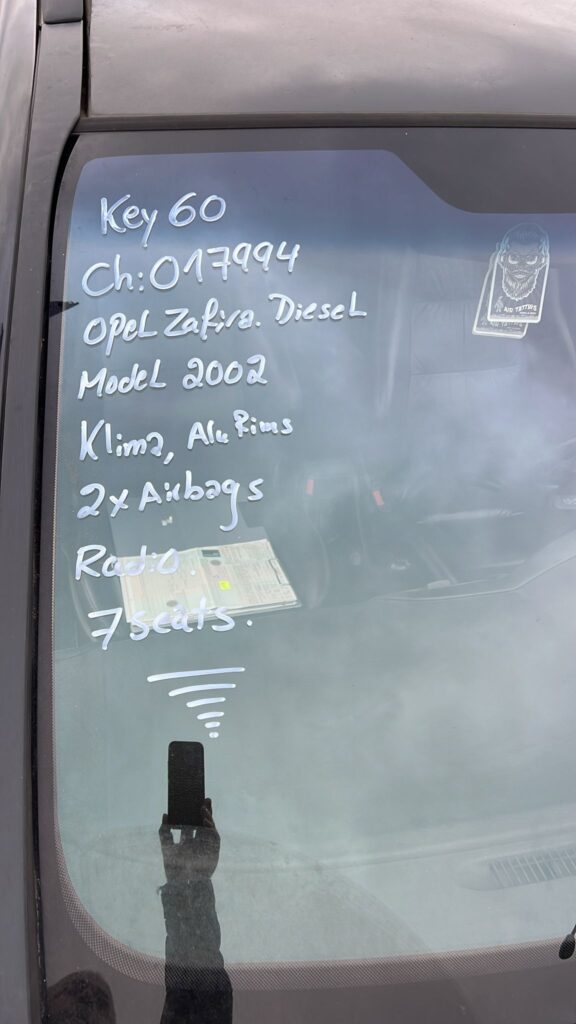 Key 60
Ch: 017994
Opel Zafira. Diesel
Model 2002
Klima, Alu Rims
2x Airbags
Radio.
7 seats.